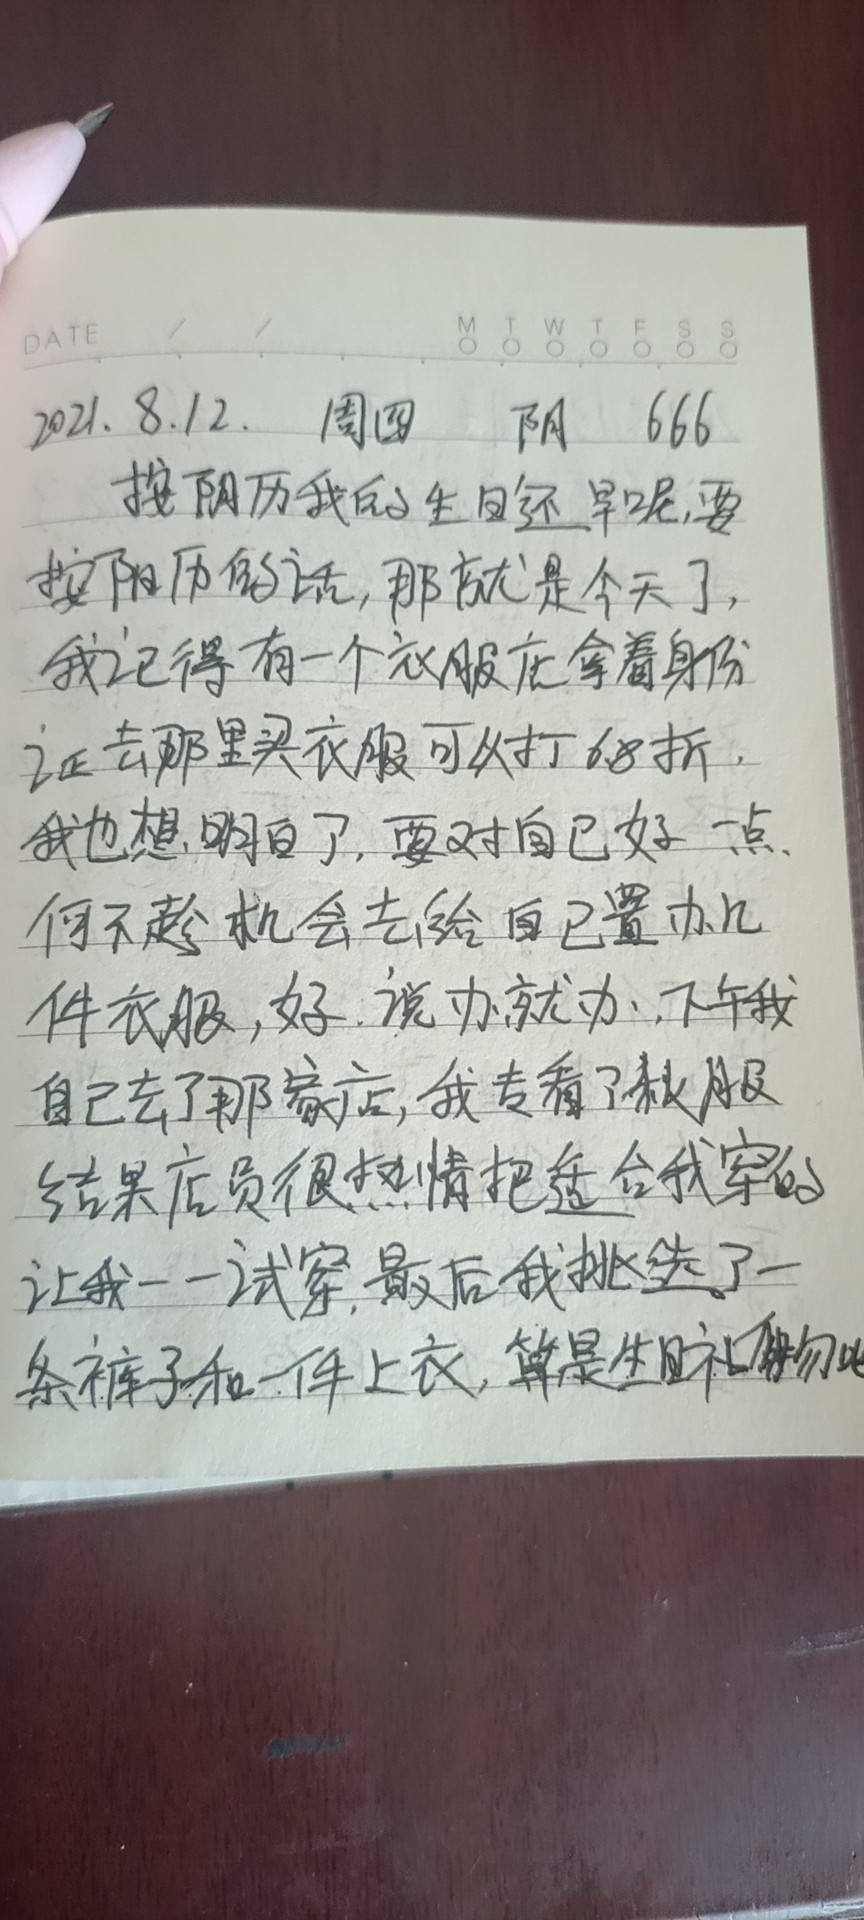 DATE / / M T W T F S S
2021.8.12. 周四 阴 666
按阴历我的生日还早呢,要
按阳历的话,那就是今天了,
我记得有一个衣服店拿着身份
证去那里买衣服可以打6.8折.
我也想明白了,要对自己好一点、
何不趁机会去给自己置办几
件衣服,好.说办就办.下午我
自己去了那家店,我专看了秋服
结果店员很热情把适合我穿的
让我一一试穿,最后我挑选了一
条裤子和一件上衣,算是生日礼物吧